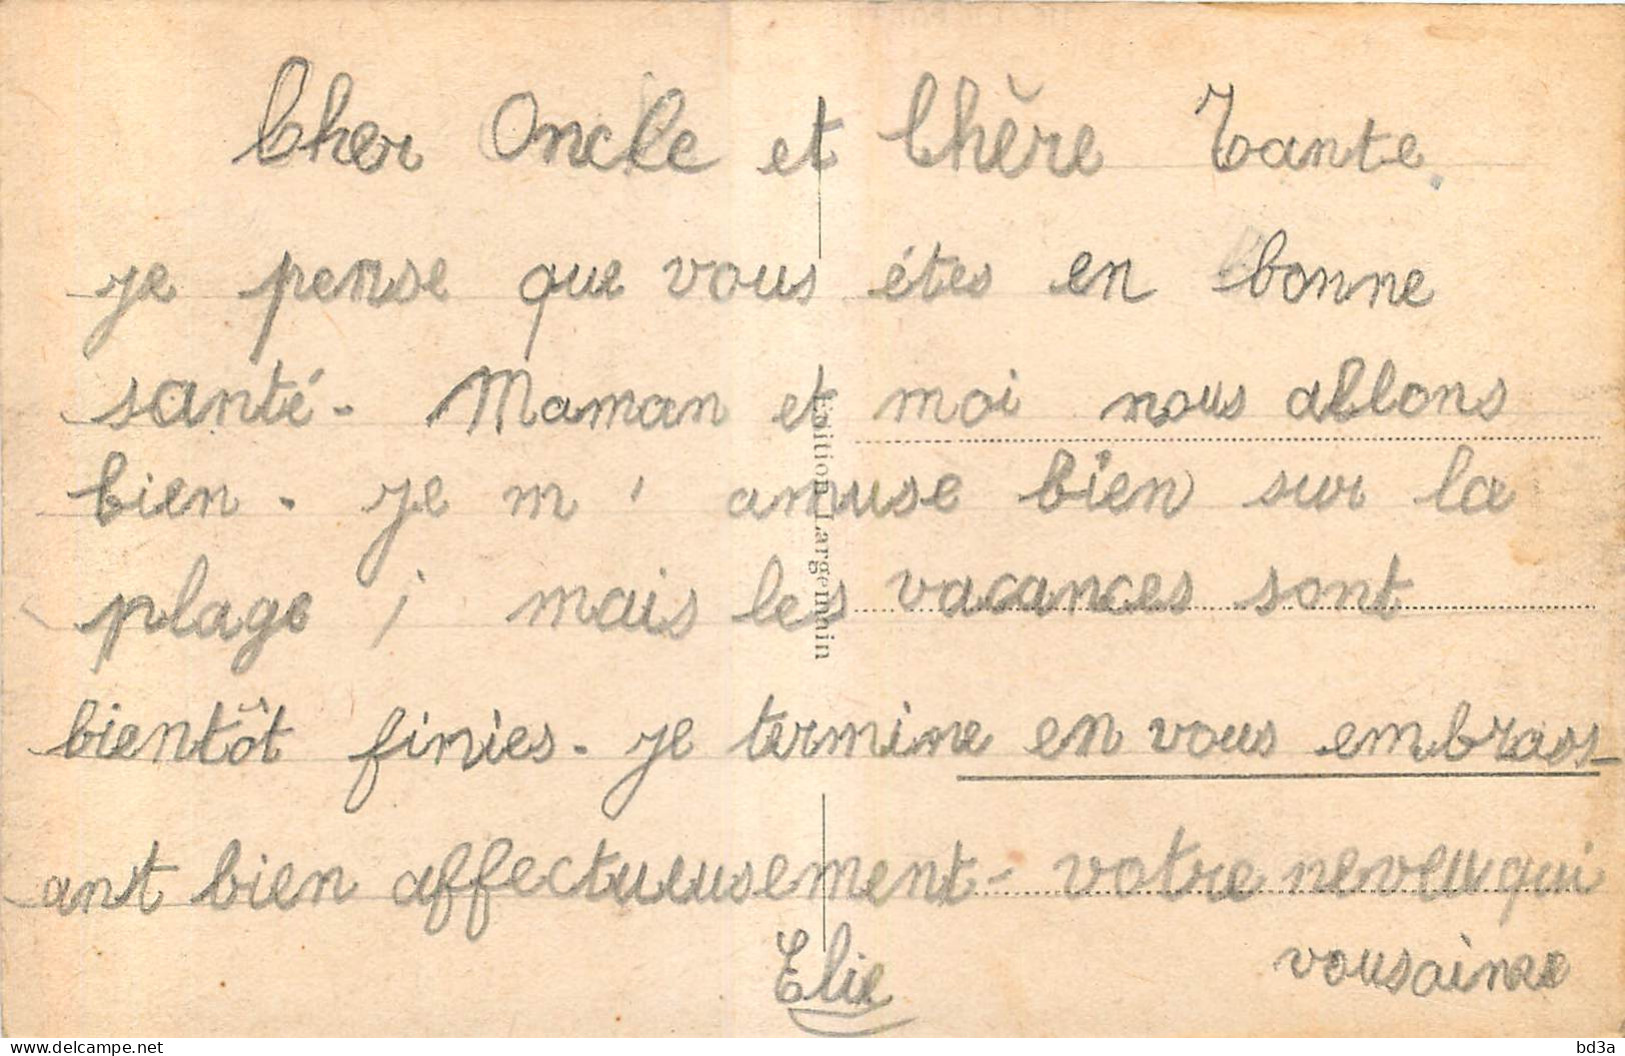 Cher Oncle et Chère Tante.
je pense que vous étes en bonne
santé - Maman et moi nous allons
bien - je m'amuse bien sur la
plage ; mais les vacances sont
bientôt finies - je termine en vous embrass-
ant bien affectueusement - votre neveu qui
vous aime
Elie
Edition Largemain
delcampe.net
bd3a